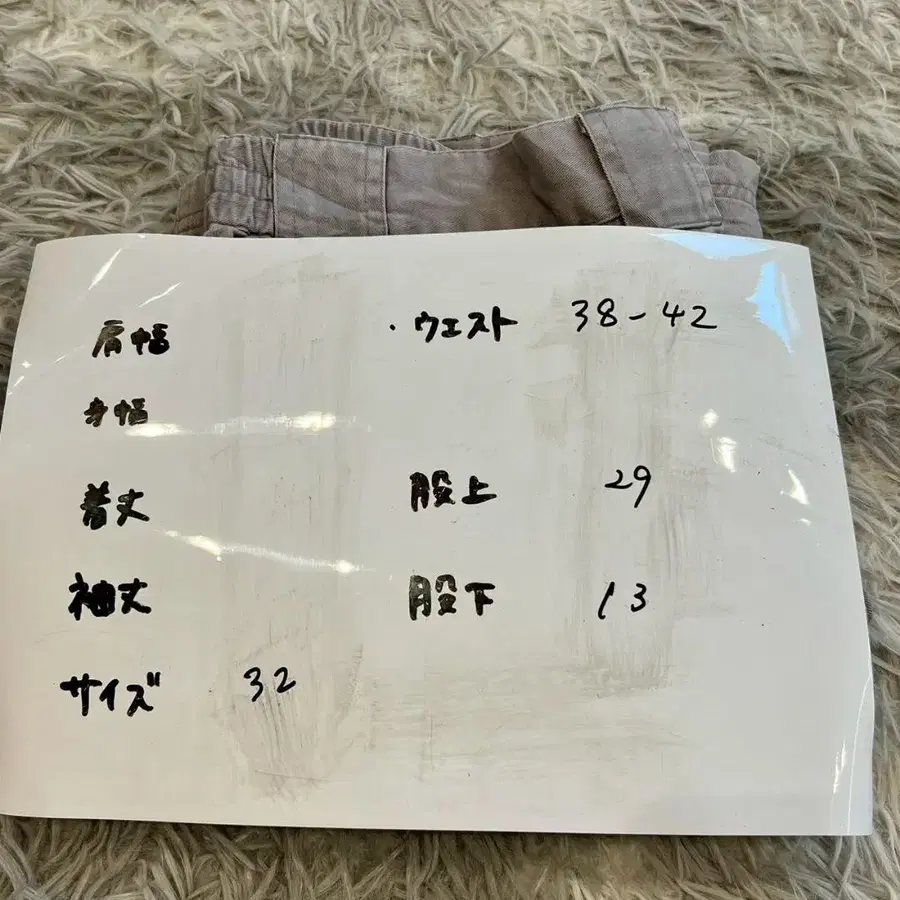 肩幅
・ウエスト 38-42
身幅
着丈
股上 29
袖丈
股下 13
サイズ 32